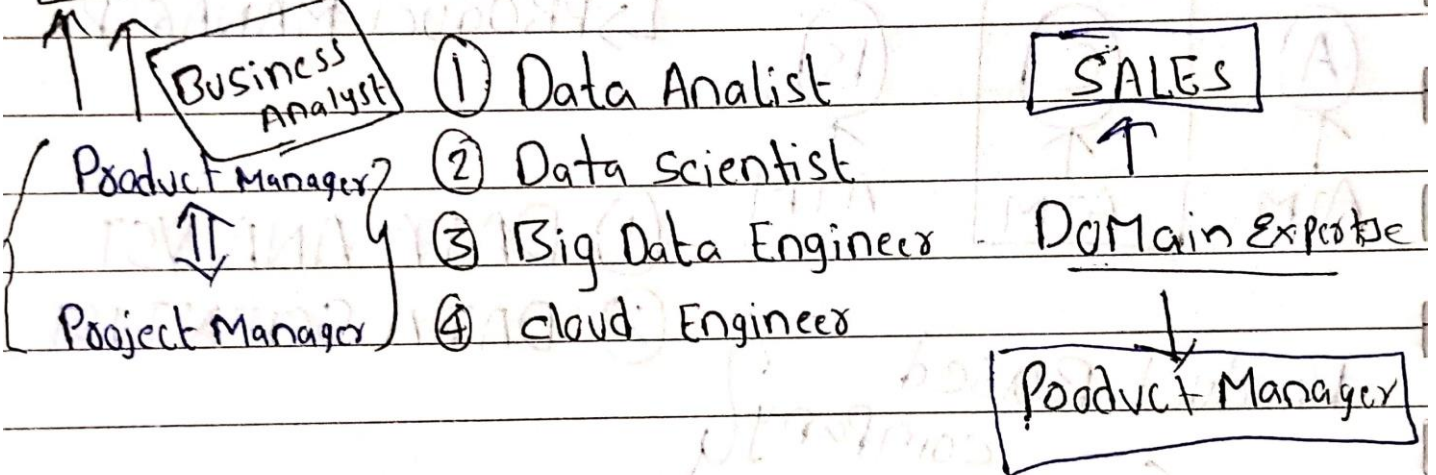 Business
Analyst
Product Manager
Project Manager
① Data Analist
② Data Scientist
③ Big Data Engineer -
④ cloud Engineer
SALES
DOMain Expertise
Product Manager